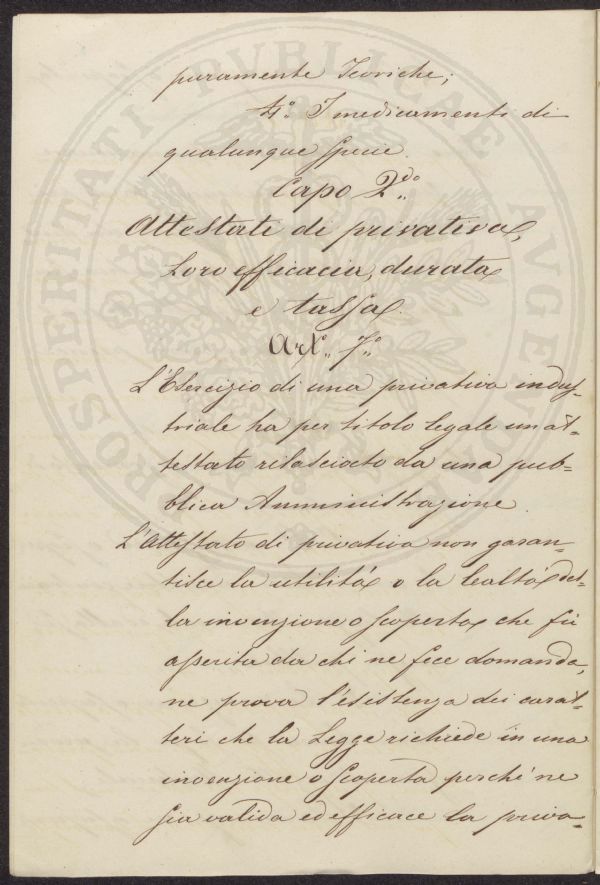 puramente Teoriche;
4.° I medicamenti di
qualunque specie.
Capo 2.do
Attestati di privativa,
loro efficacia, durata
e tassa.
Art. 7.°
L'Esercizio di una privativa indus=
triale ha per titolo legale un at=
testato rilasciato da una pub=
blica Amministrazione.
L'attestato di privativa non garan=
tisce la utilità o la realtà del=
la invenzione o scoperta che fù
asserita da chi ne fece domanda,
ne prova l'esistenza dei carat=
teri che la Legge richiede in una
invenzione o scoperta perchè ne
sia valida ed efficace la priva=
PROSPERITATI PVBLICAE AVGENDAE